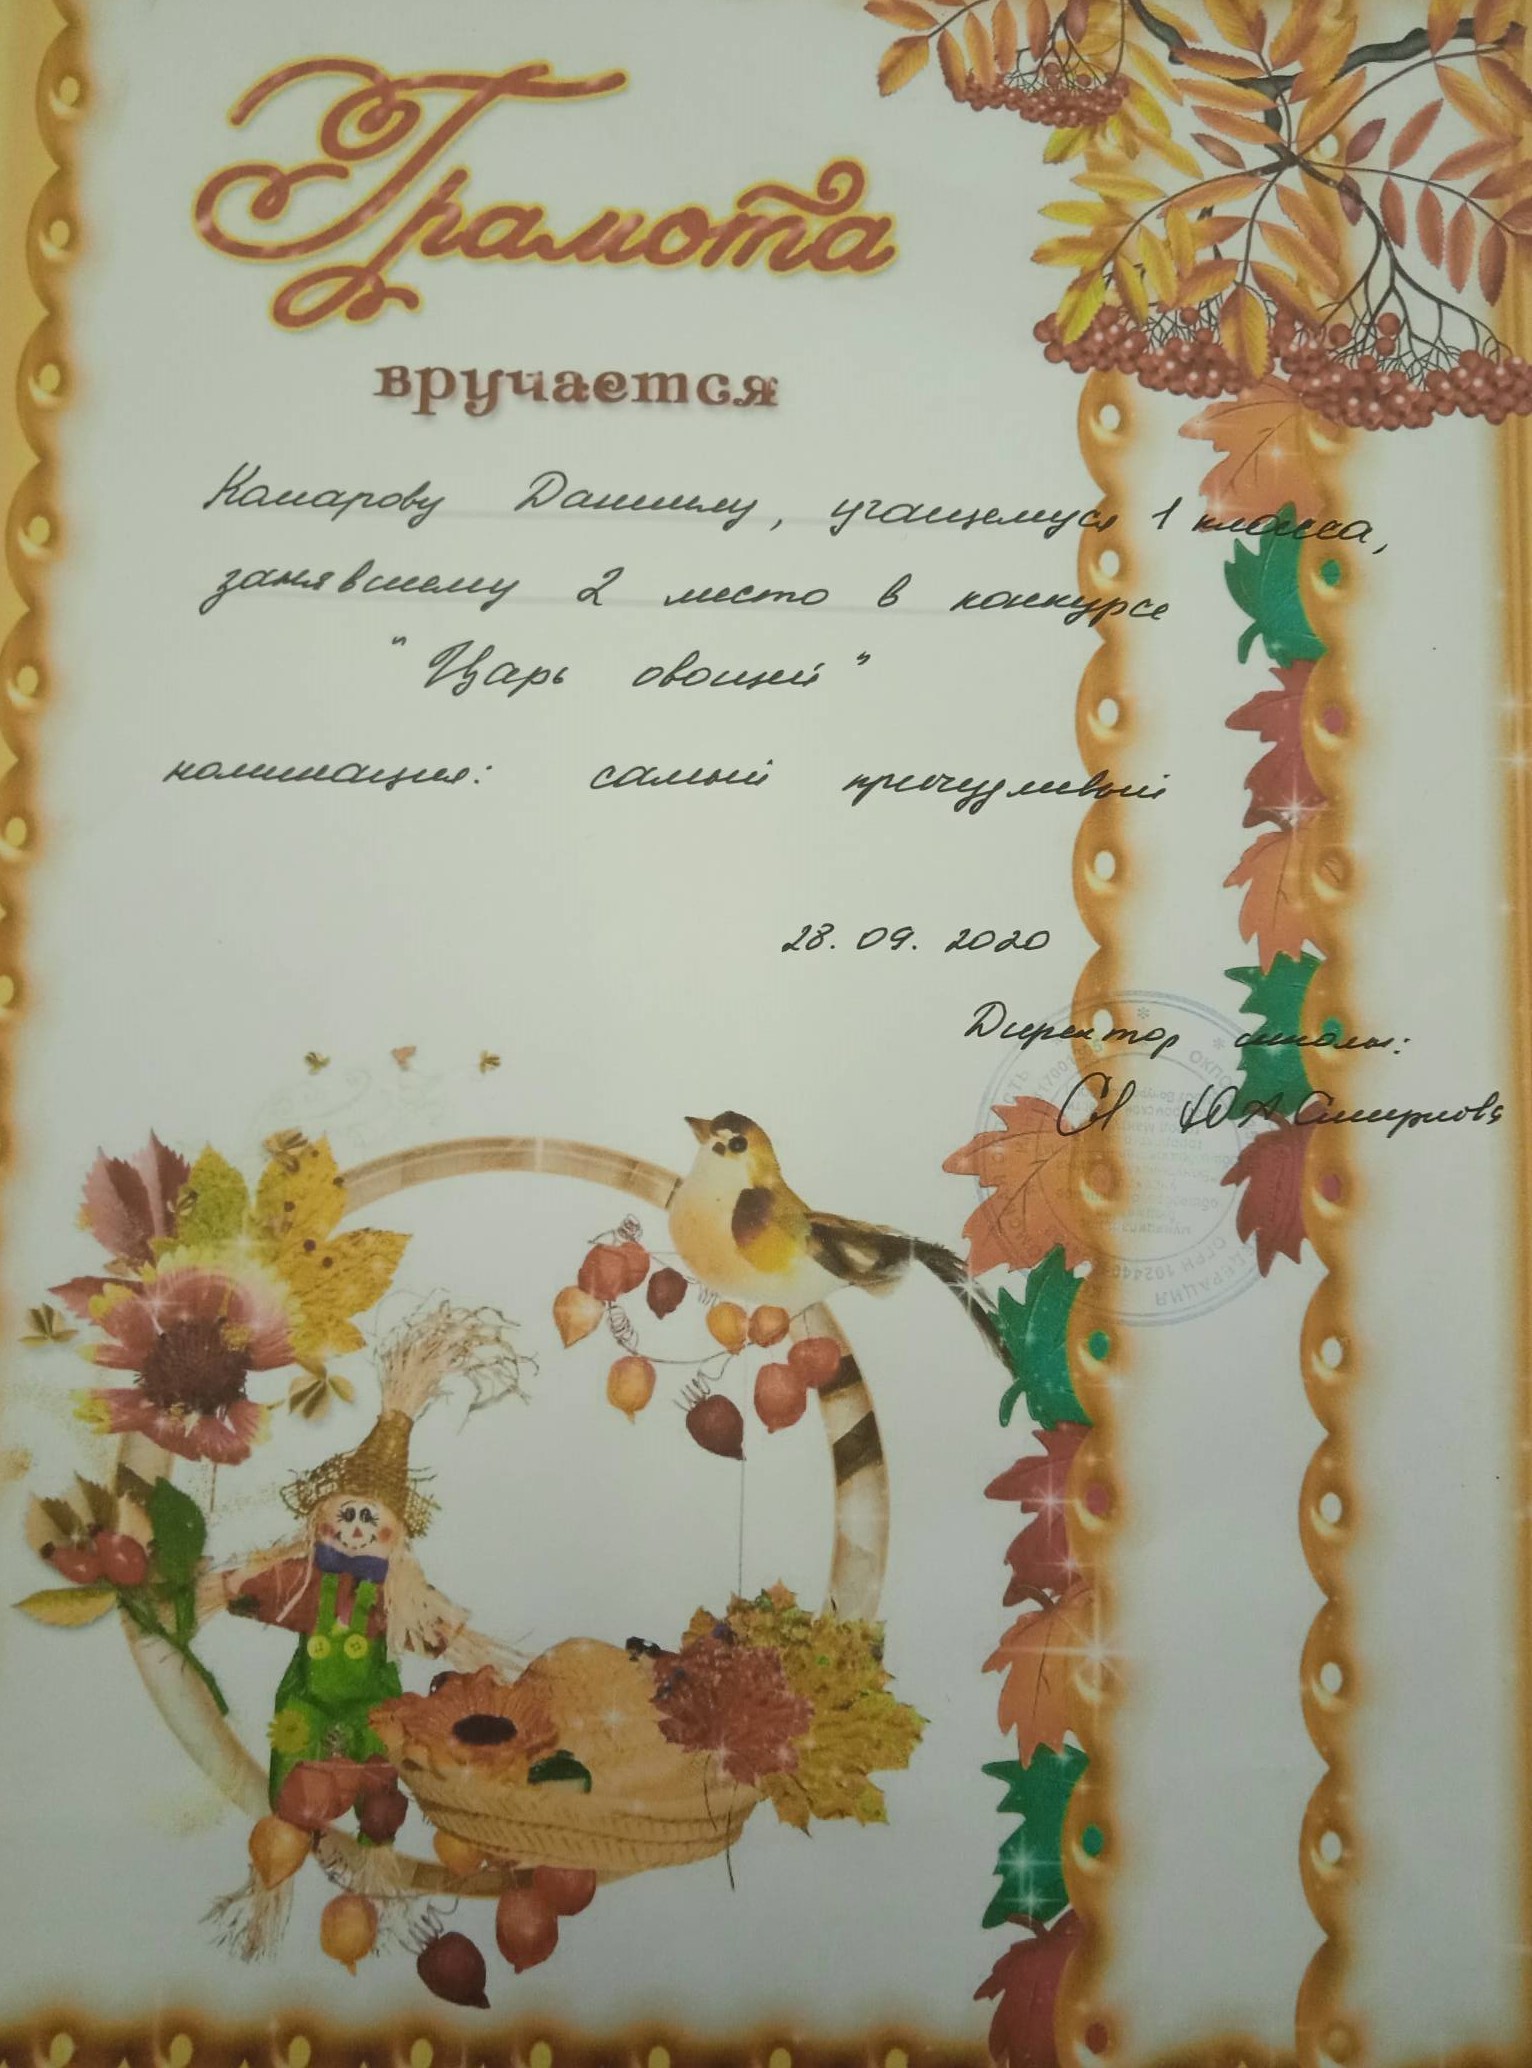 Грамота
вручается
Комарову Даниилу, учащемуся 1 класса,
занявшему 2 место в конкурсе
"Царь овощей"
номинация: самый причудливый
28.09.2020
Директор школы:
Ю А Смирнова